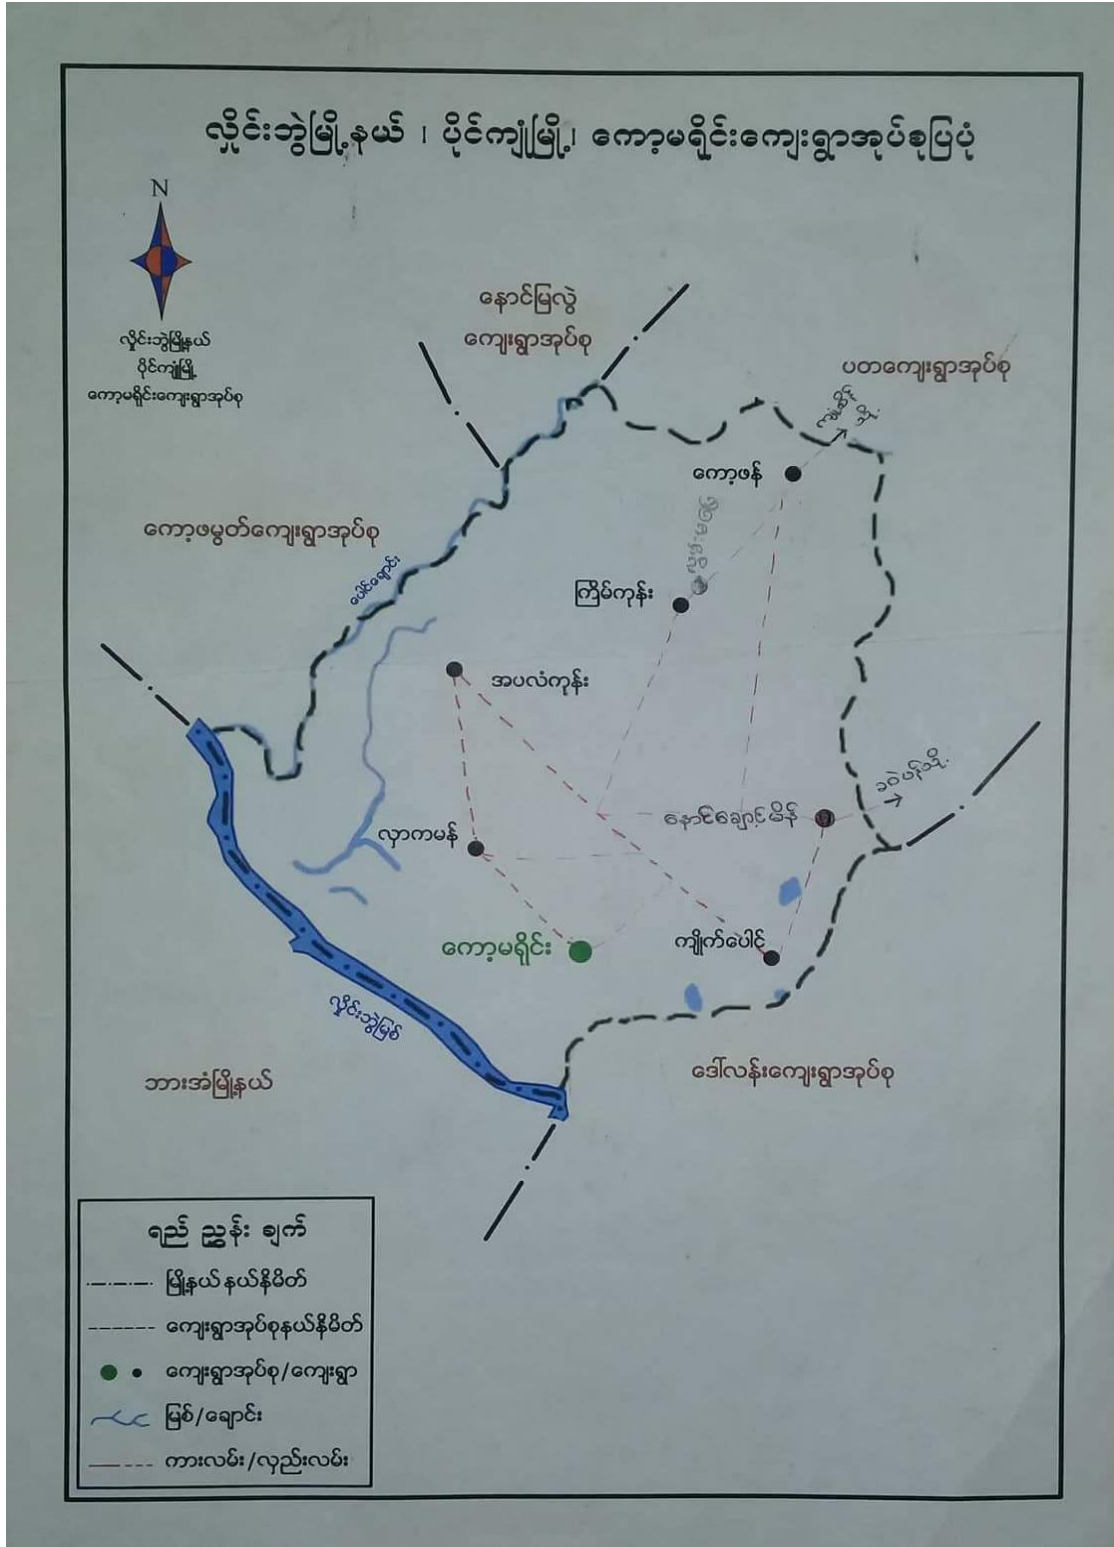 လှိုင်းဘွဲမြို့နယ် ၊ ပိုင်ကျုံမြို့၊ ကော့မရိုင်းကျေးရွာအုပ်စုပြပုံ
N
လှိုင်းဘွဲမြို့နယ်
ပိုင်ကျုံမြို့
ကော့မရိုင်းကျေးရွာအုပ်စု
နောင်မြလွဲ
ကျေးရွာအုပ်စု
ပတကျေးရွာအုပ်စု
ကော့ဖန်
ကော့ဖမွတ်ကျေးရွာအုပ်စု
ပေါင်ချောင်း
ကြိမ်ကုန်း
အပလံကုန်း
နောင်ချောင့်မိန်
လှာကမန်
ကော့မရိုင်း
ကျိုက်ပေါင်
လှိုင်းဘွဲမြစ်
ဘားအံမြို့နယ်
ဒေါ်လန်းကျေးရွာအုပ်စု
ရည် ညွှန်း ချက်
မြို့နယ်နယ်နိမိတ်
ကျေးရွာအုပ်စုနယ်နိမိတ်
ကျေးရွာအုပ်စု/ကျေးရွာ
မြစ်/ချောင်း
ကားလမ်း/လှည်းလမ်း